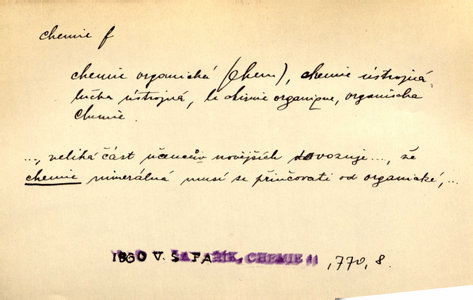 chemie f
chemie organická (Chem), chemie ústrojná
lučba ústrojná, la chimie organique, organische
Chemie.
..., veliká část učencův novějších dovozuje ..., že
chemie minerálná musí se přiučovati od organické, ...
1860 V. ŠAFAŘÍK, CHEMIE II, 770, 8.